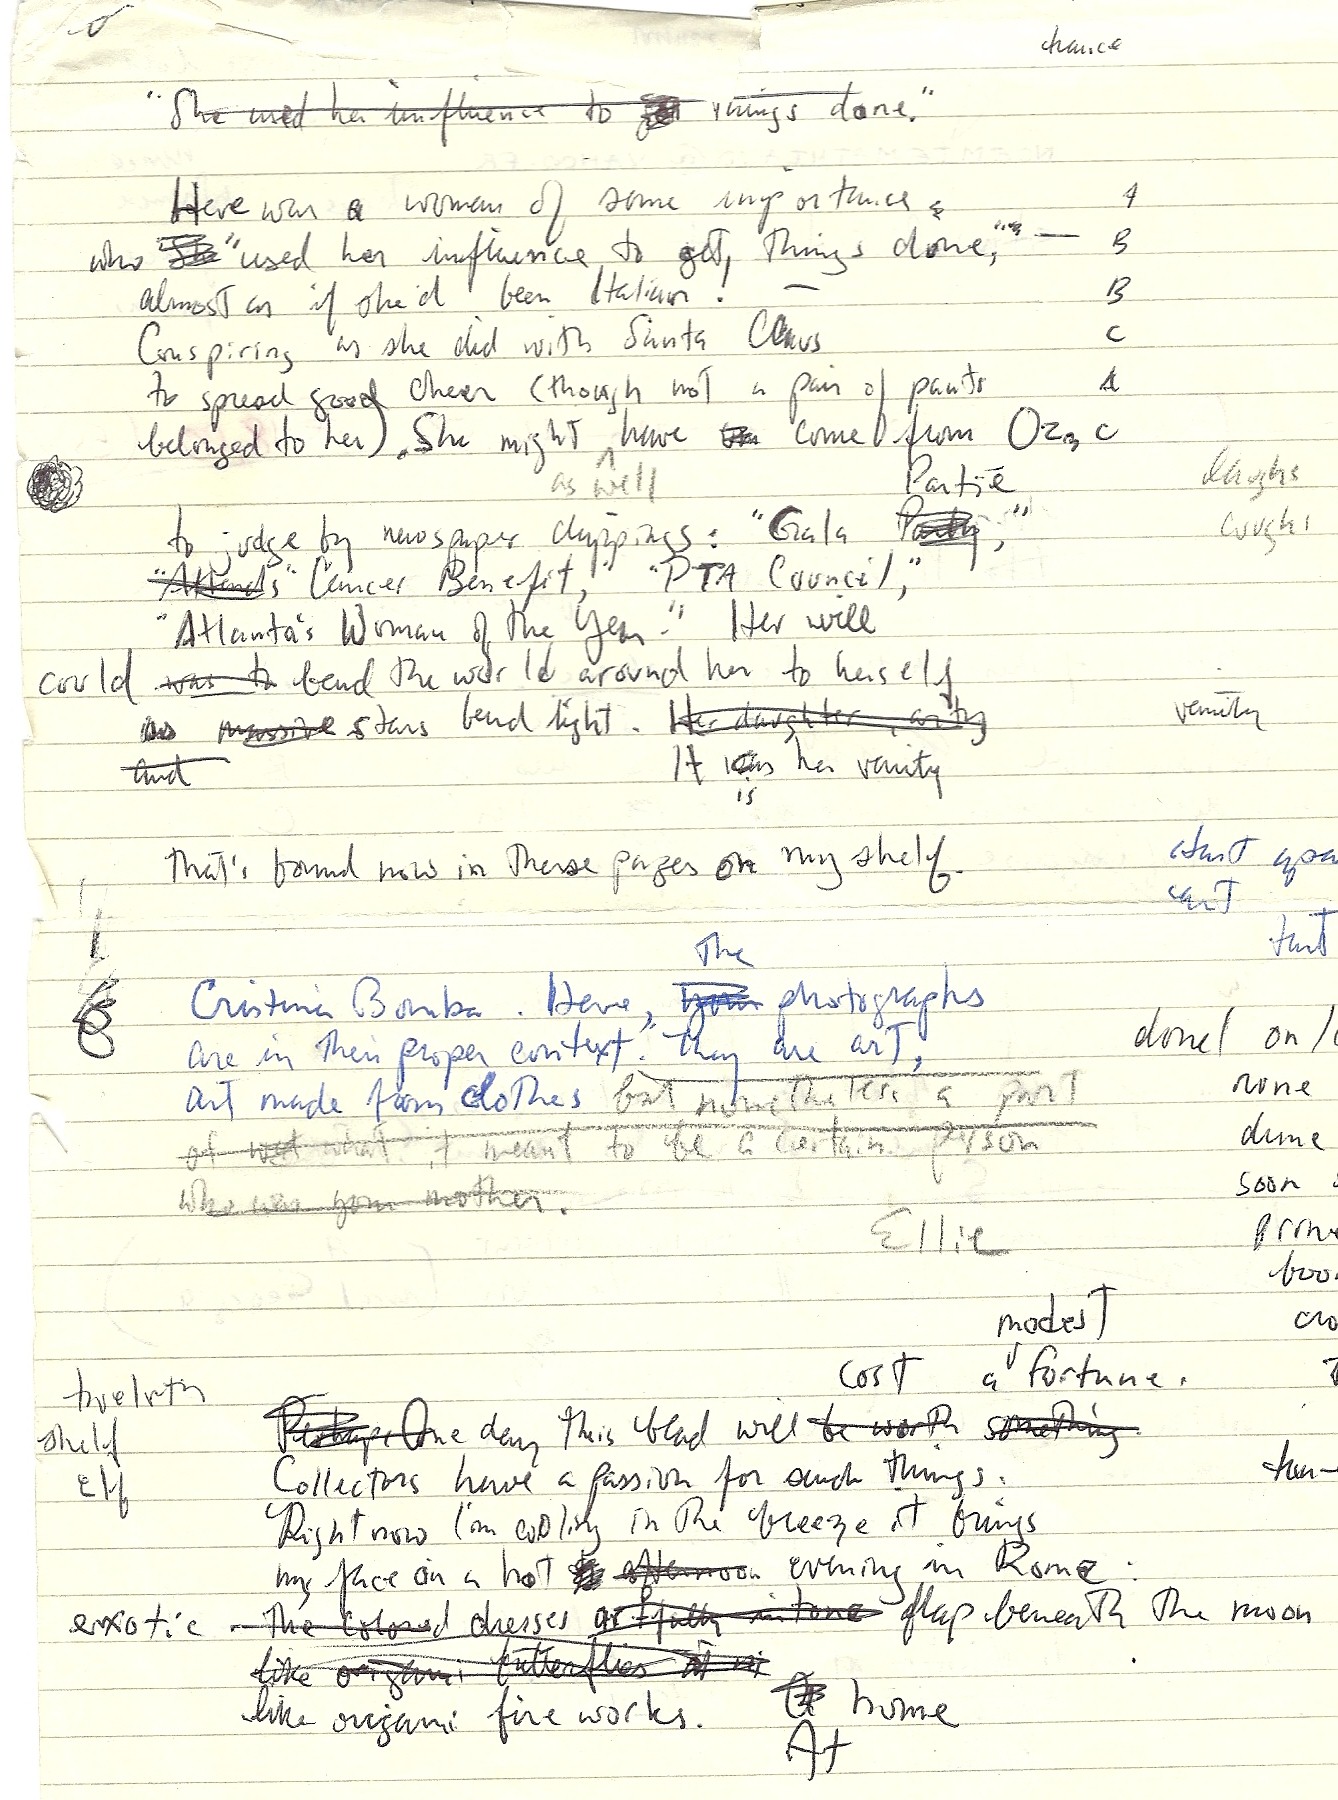 chance
"She used her influence to get things done."
Here was a woman of some importance, A
who She "used her influence to get things done," — B
almost as if she'd been Italian! — B
Conspiring as she did with Santa Claus C
to spread good cheer (though not a pair of pants A
belonged to her). She might have come from Oz, C
as well
Partie
laughs
coughs
to judge by newspaper clippings: "Gala Party,"
"Attends" Cancer Benefit," "PTA Council,"
"Atlanta's Woman of the Year." Her will
could was to bend the world around her to herself
as massive stars bend light. Her daughter, vanity
and It was her vanity
is
that's bound now in these pages on my shelf.
start
can't
The
Cristina Bomba. Here, your photographs
are in their proper context. They are art,
art made from clothes but nonetheless a part
of what it meant to be a certain person
who was your mother.
Ellie
done / on /
none
dune
soon
modest
cost a fortune.
twelfth
shelf
elf
Perhaps One day this blad will be worth something
Collectors have a passion for such things.
Right now I'm cooling in the breeze it brings
my face on a hot afternoon evening in Rome.
exotic The colored dresses artfully flap beneath the moon
like origami butterflies
like origami fireworks.
home
At